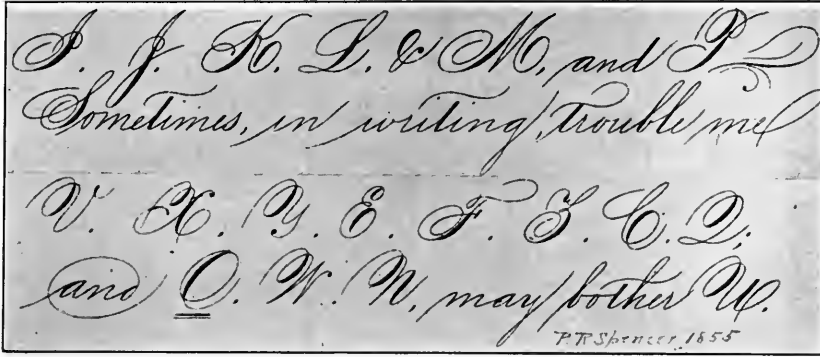 I. J. K. L. & M, and P
Sometimes, in writing, trouble me
V. X. Y. E. F. T. C. Q;
and O. W. N, may bother U.
P. R. Spencer, 1855